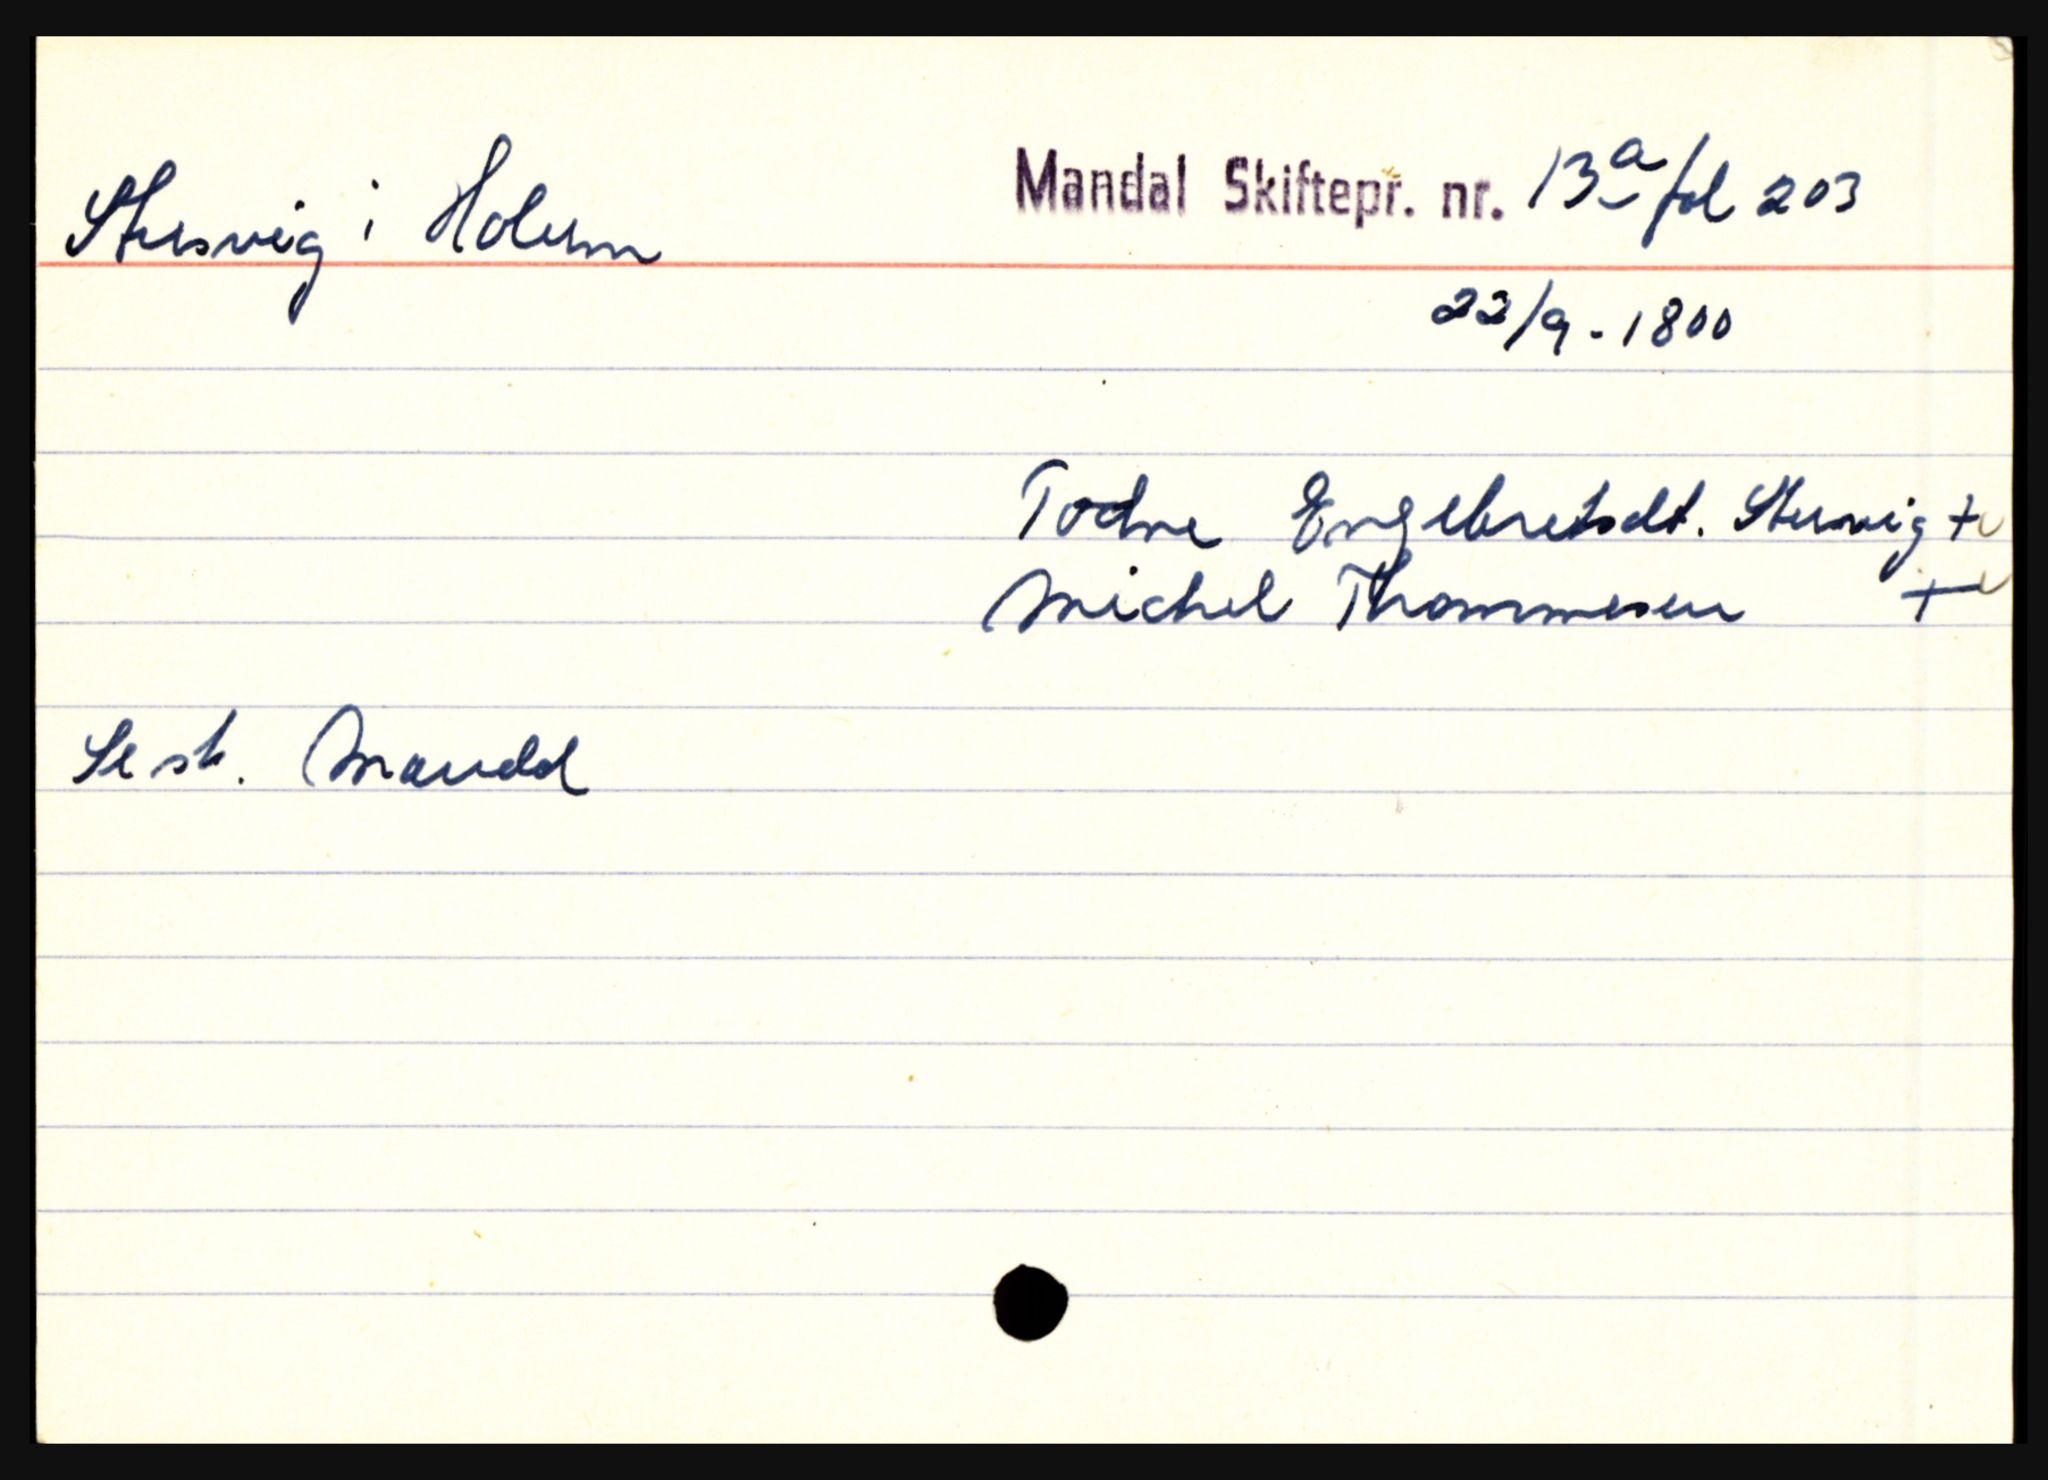 Stusvig i Holum
Mandal Skiftepr. nr. 13a fol 203
22/9 - 1800
Todne Engebretsdt. Stusvig +
Michel Thommesen +
Se sk. Mandal